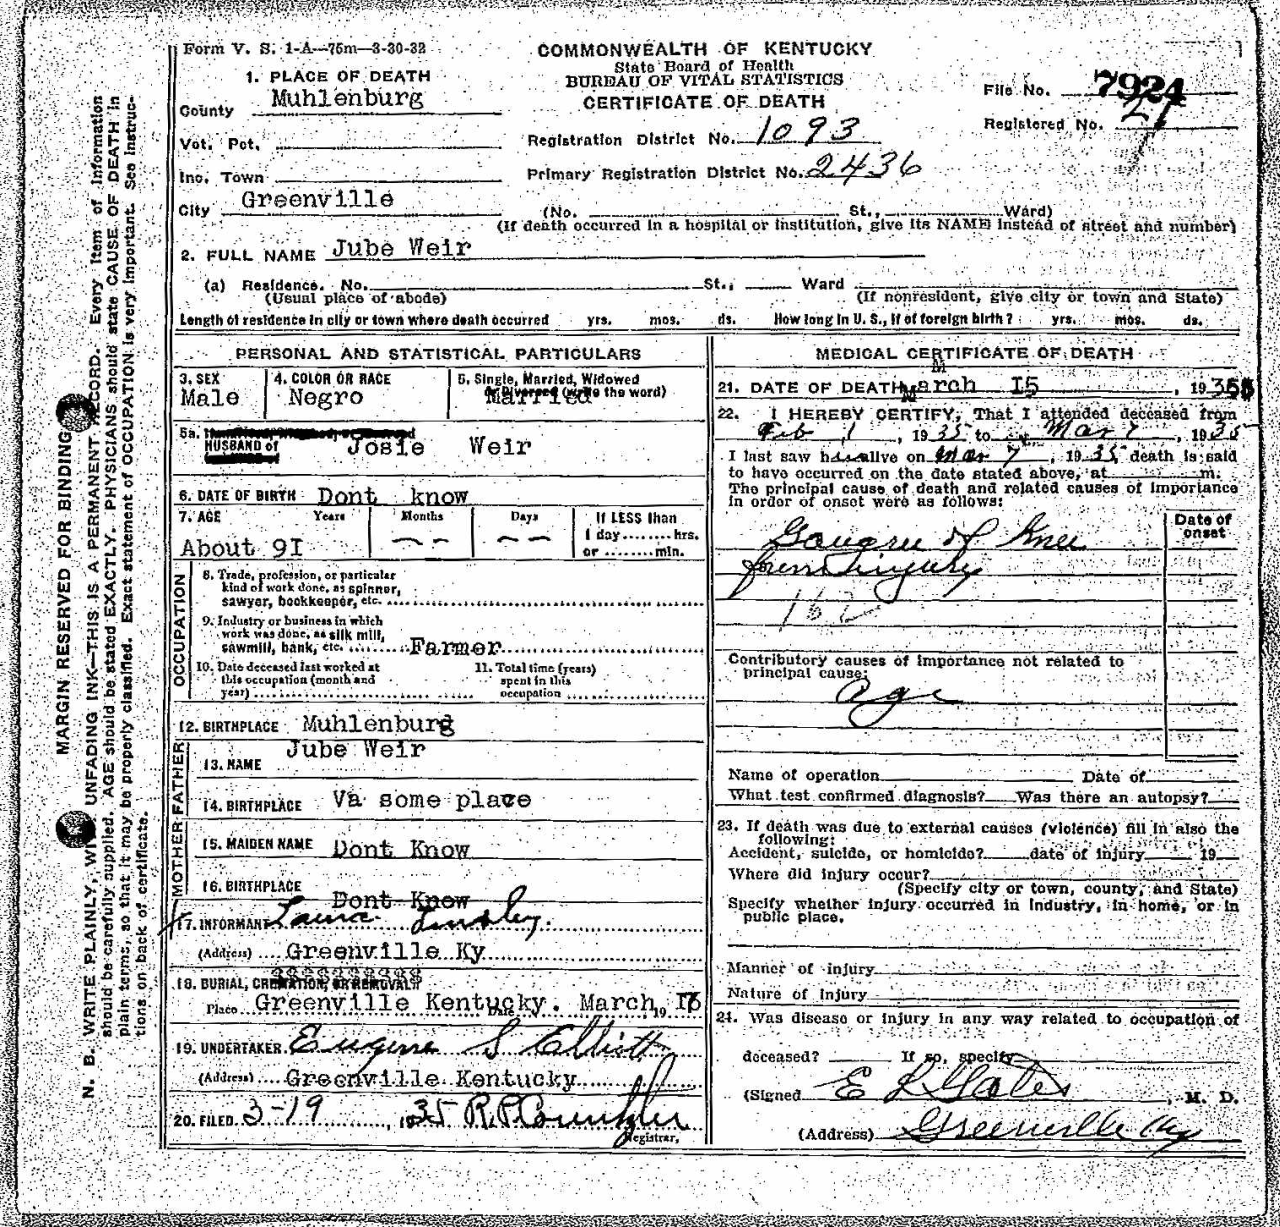 Form V. S. 1-A—75m—3-30-32
COMMONWEALTH OF KENTUCKY
State Board of Health
BUREAU OF VITAL STATISTICS
CERTIFICATE OF DEATH
File No. 7924
Registered No.
1. PLACE OF DEATH
County Muhlenburg
Vot. Pct.
Inc. Town
City Greenville
Registration District No. 1093
Primary Registration District No. 2436
(No. St., Ward)
(If death occurred in a hospital or institution, give its NAME instead of street and number)
2. FULL NAME Jube Weir
(a) Residence. No. St., Ward
(Usual place of abode) (If nonresident, give city or town and State)
Length of residence in city or town where death occurred yrs. mos. ds. How long in U. S., if of foreign birth? yrs. mos. ds.
PERSONAL AND STATISTICAL PARTICULARS
3. SEX Male
4. COLOR OR RACE Negro
5. Single, Married, Widowed
or Divorced (write the word)
Married
5a.
HUSBAND of Josie Weir
6. DATE OF BIRTH Dont know
7. AGE Years Months Days If LESS than
1 day ........ hrs.
or ........ min.
About 9I -- --
OCCUPATION
8. Trade, profession, or particular
kind of work done, as spinner,
sawyer, bookkeeper, etc.
9. Industry or business in which
work was done, as silk mill,
sawmill, bank, etc. Farmer
10. Date deceased last worked at
this occupation (month and
year)
11. Total time (years)
spent in this
occupation
12. BIRTHPLACE Muhlenburg
FATHER
13. NAME Jube Weir
14. BIRTHPLACE Va some place
MOTHER
15. MAIDEN NAME Dont Know
16. BIRTHPLACE Dont Know
17. INFORMANT Laura
(Address) Greenville Ky
18. BURIAL, CREMATION, OR REMOVAL
Place Greenville Kentucky. Date March 19
19. UNDERTAKER Eugene S Elliott
(Address) Greenville Kentucky
20. FILED 3-19, 1935 R.P.
Registrar.
MEDICAL CERTIFICATE OF DEATH
21. DATE OF DEATH March I5, 1935
22. I HEREBY CERTIFY, That I attended deceased from
Feb 1, 1935 to Mar, 1935
I last saw h alive on Mar 7, 1935, death is said
to have occurred on the date stated above, at m.
The principal cause of death and related causes of importance
in order of onset were as follows:
Date of
onset
of Knee
from Injury
162
Contributory causes of importance not related to
principal cause:
age
Name of operation Date of
What test confirmed diagnosis? Was there an autopsy?
23. If death was due to external causes (violence) fill in also the
following:
Accident, suicide, or homicide? date of injury 19
Where did injury occur?
(Specify city or town, county, and State)
Specify whether injury occurred in industry, in home, or in
public place.
Manner of injury
Nature of injury
24. Was disease or injury in any way related to occupation of
deceased? If so, specify
(Signed E L Gates, M. D.
(Address) Greenville Ky
MARGIN RESERVED FOR BINDING
N. B. WRITE PLAINLY, WITH UNFADING INK—THIS IS A PERMANENT RECORD. Every item of information
should be carefully supplied. AGE should be stated EXACTLY. PHYSICIANS should state CAUSE OF DEATH in
plain terms, so that it may be properly classified. Exact statement of OCCUPATION is very important. See instruc-
tions on back of certificate.